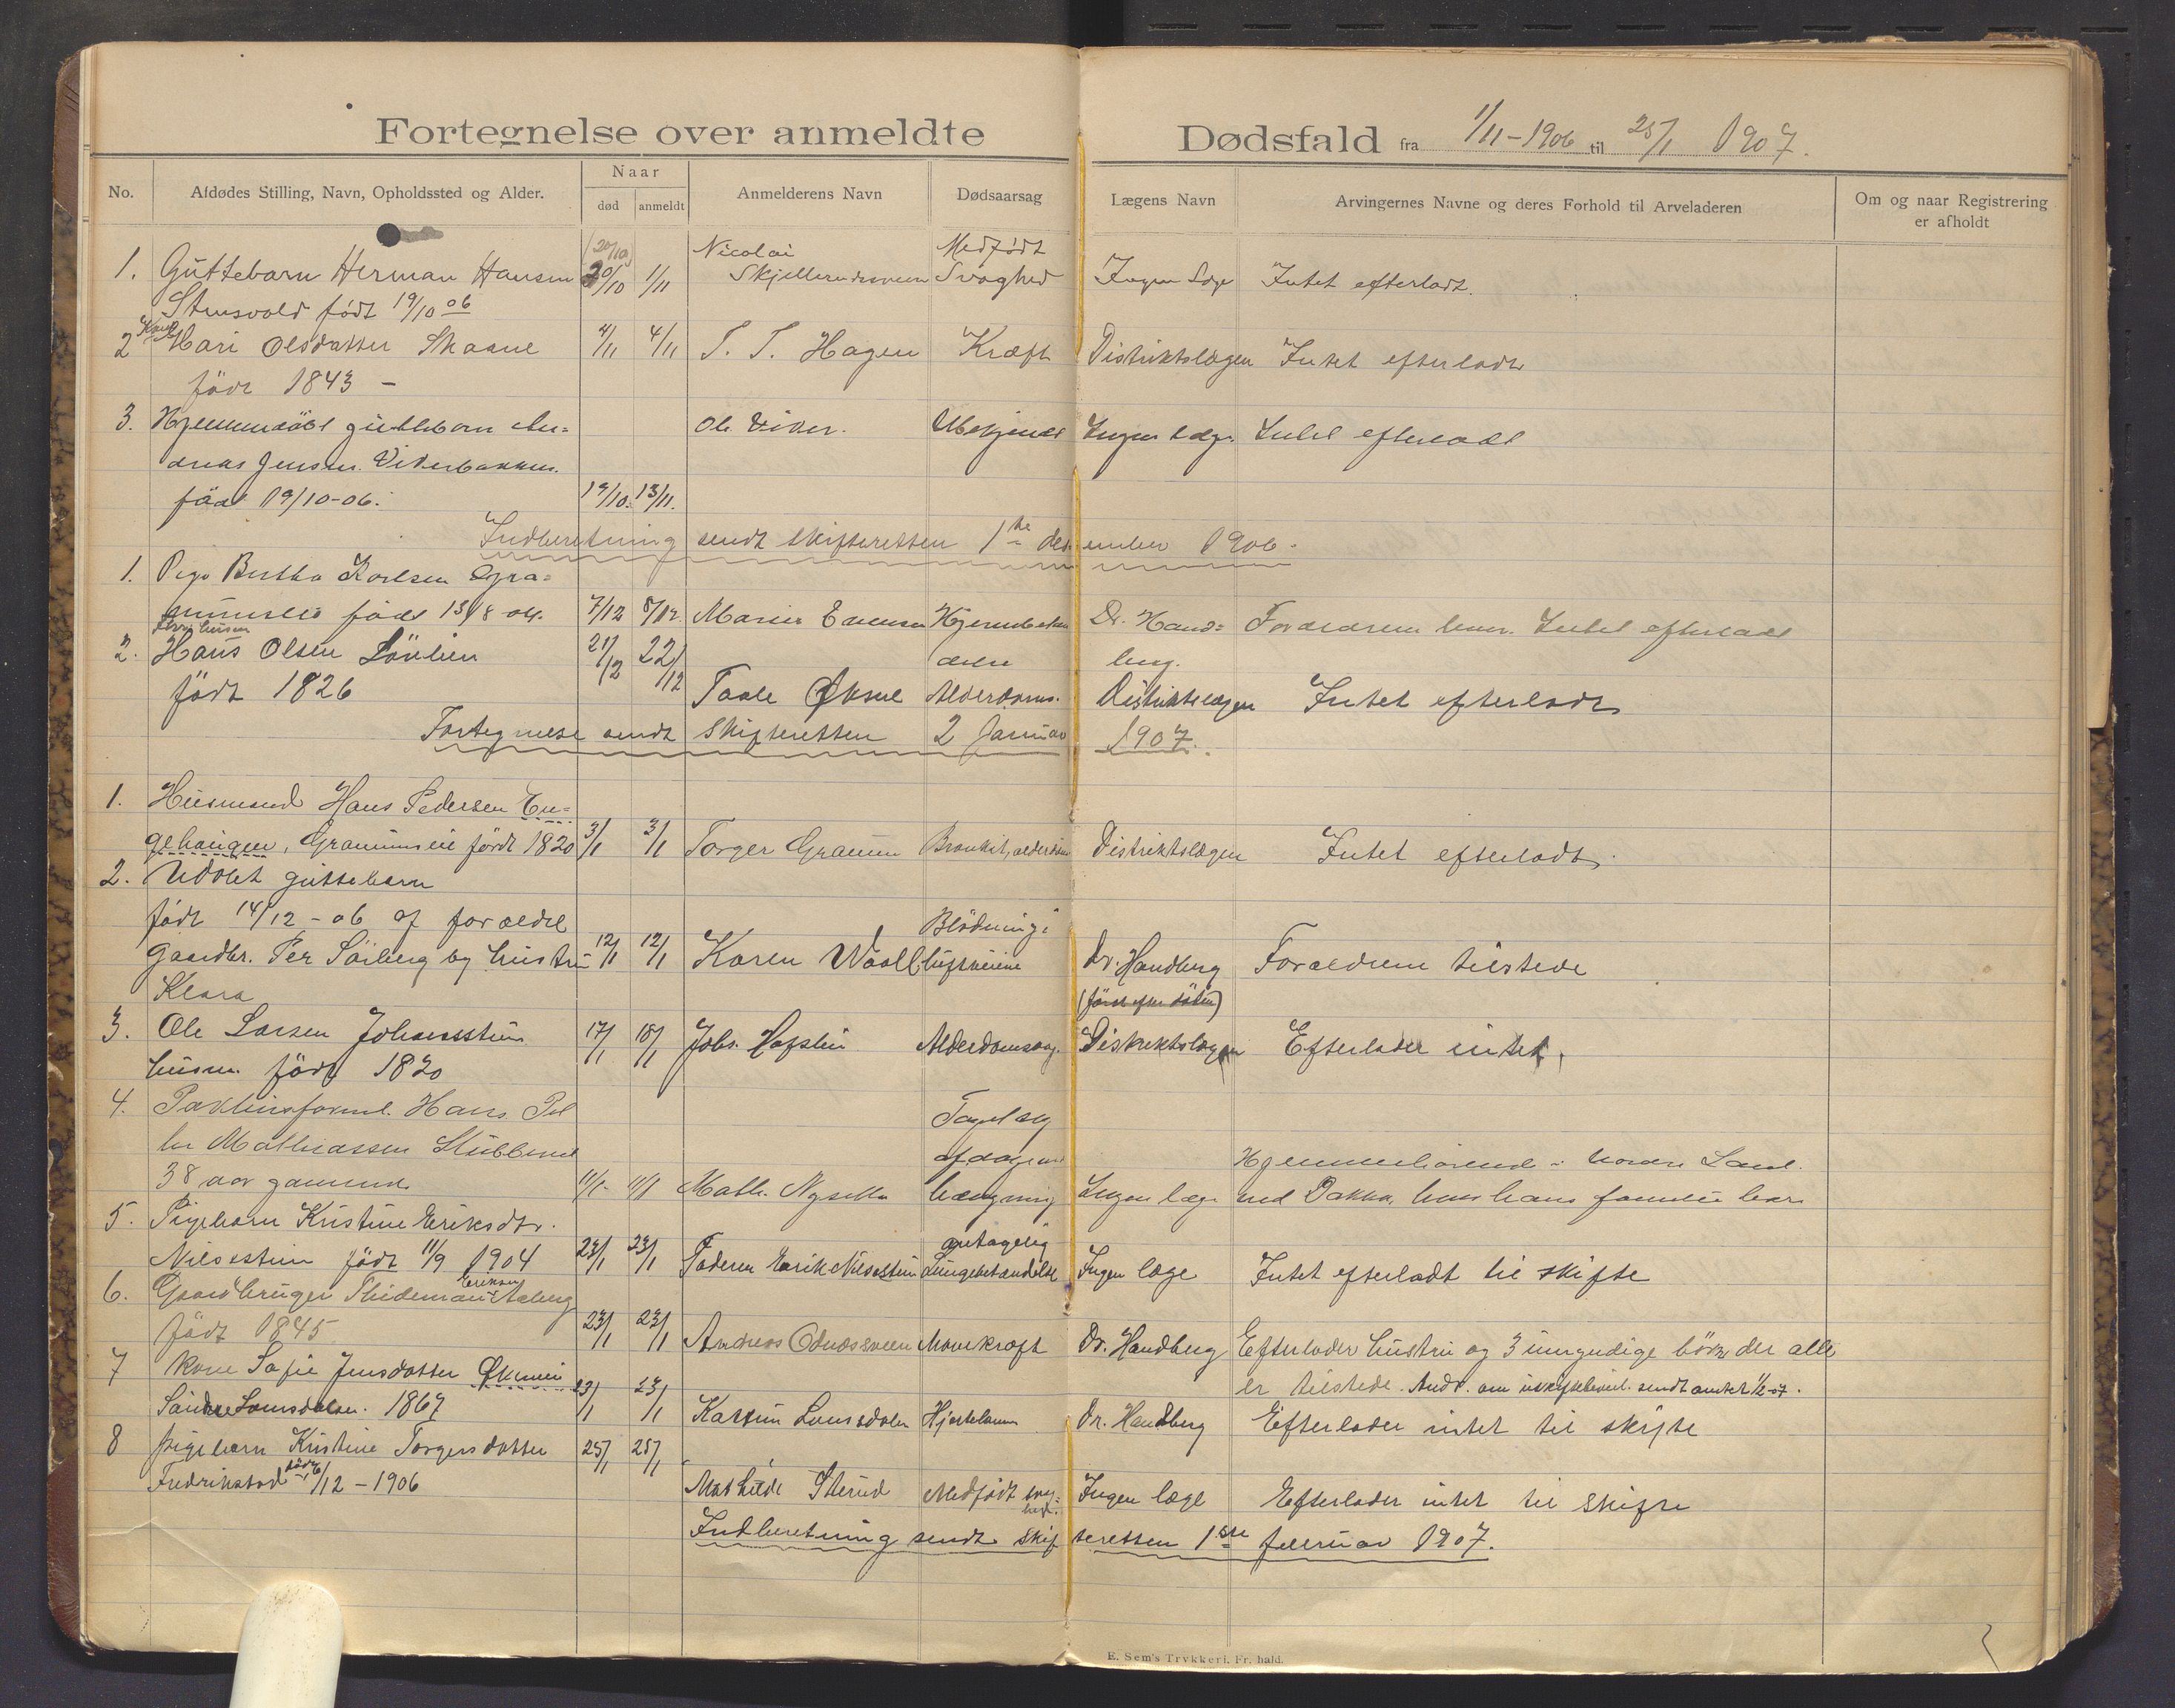 Fortegnelse over anmeldte Dødsfald fra 1/11-1906 til 25/1 1907.
No. Afdødes Stilling, Navn, Opholdssted og Alder. Naar død anmeldt Anmelderens Navn Dødsaarsag Lægens Navn Arvingernes Navne og deres Forhold til Arveladeren Om og naar Registrering er afholdt
Nicolai Medfødt
1. Guttebarn Herman Hansen 20/10 1/11 Svaghed Ingen Intet efterladt.
Stensvold født 19/10 06
2 Kone Mari Olsdatter 4/11 4/11 T. T. Hagen Kræft Distriktslægen Intet efterladt
født 1843 –
3. Hjemmedøbt guttebarn An=
Ubekjendt Ingen læge Intet efterladt
dreas Jensen
født 19/10-06. 19/10. 13/11.
Indberetning sendt skifteretten 1ste desember 1906.
1. Pige Bertha Karlsen
født 13/8 04. 7/12 8/12. Dr. Hand= Forældrene lever. Intet efterladt
2. Hans Olsen 21/12 22/12 berg.
født 1826 Alderdoms. Distriktslægen Intet efterladt
Fortegnelse sendt skifteretten 2 Januar 1907.
1. Husmand Hans Pedersen En=
gehaugen, født 1820 3/1 3/1 Torger Distriktslægen Intet efterladt.
2. Udøbt guttebarn
født 14/12-06 af forældre Blødning i
Gaardbr. Per og hustru 12/1 12/1 Karen luftveiene Dr. Handberg Forældrene tilstede
Klara (først efter døden)
3. Ole Larsen Johannsstuen 17/1 18/1 Johs. Alderdomssvag. Distriktslægen Efterlader intet.
husm. født 1820
4. Hans Pet
ter Mathiassen
Hjemmehørende i nordre Land.
38 aar gammel. 11/1. 11/1 Math. hængning Ingen læge ved Dokka, hvor hans familie bor
5. Pigebarn Kristine Eriksdtr. antagelig
Nilsestuen født 11/9 1904 23/1 23/1 Faderen Erik Nilsestuen Lungebetændelse Ingen læge Intet efterladt til skifte
6. Gaardbruger Thideman Eriksen Aaberg
født 1845 23/1 23/1 Andreas Mavekræft Dr. Handberg Efterlader hustru og 3 umyndige børn der alle
er tilstede. sendt amtet 1/2-07.
7 Kone Sofie Jensdatter
1867 23/1 23/1 Dr. Handberg Efterlader intet til skifte
8 Pigebarn Kristine Torgersdatter 25/1 25/1
Fredrikstad født /12-1906 Mathilde Medfødt svag=hed. Ingen læge Efterlader intet til skifte
Indberetning sendt skifteretten 1ste februar 1907.
E. Sem's Trykkeri, Fr. hald.